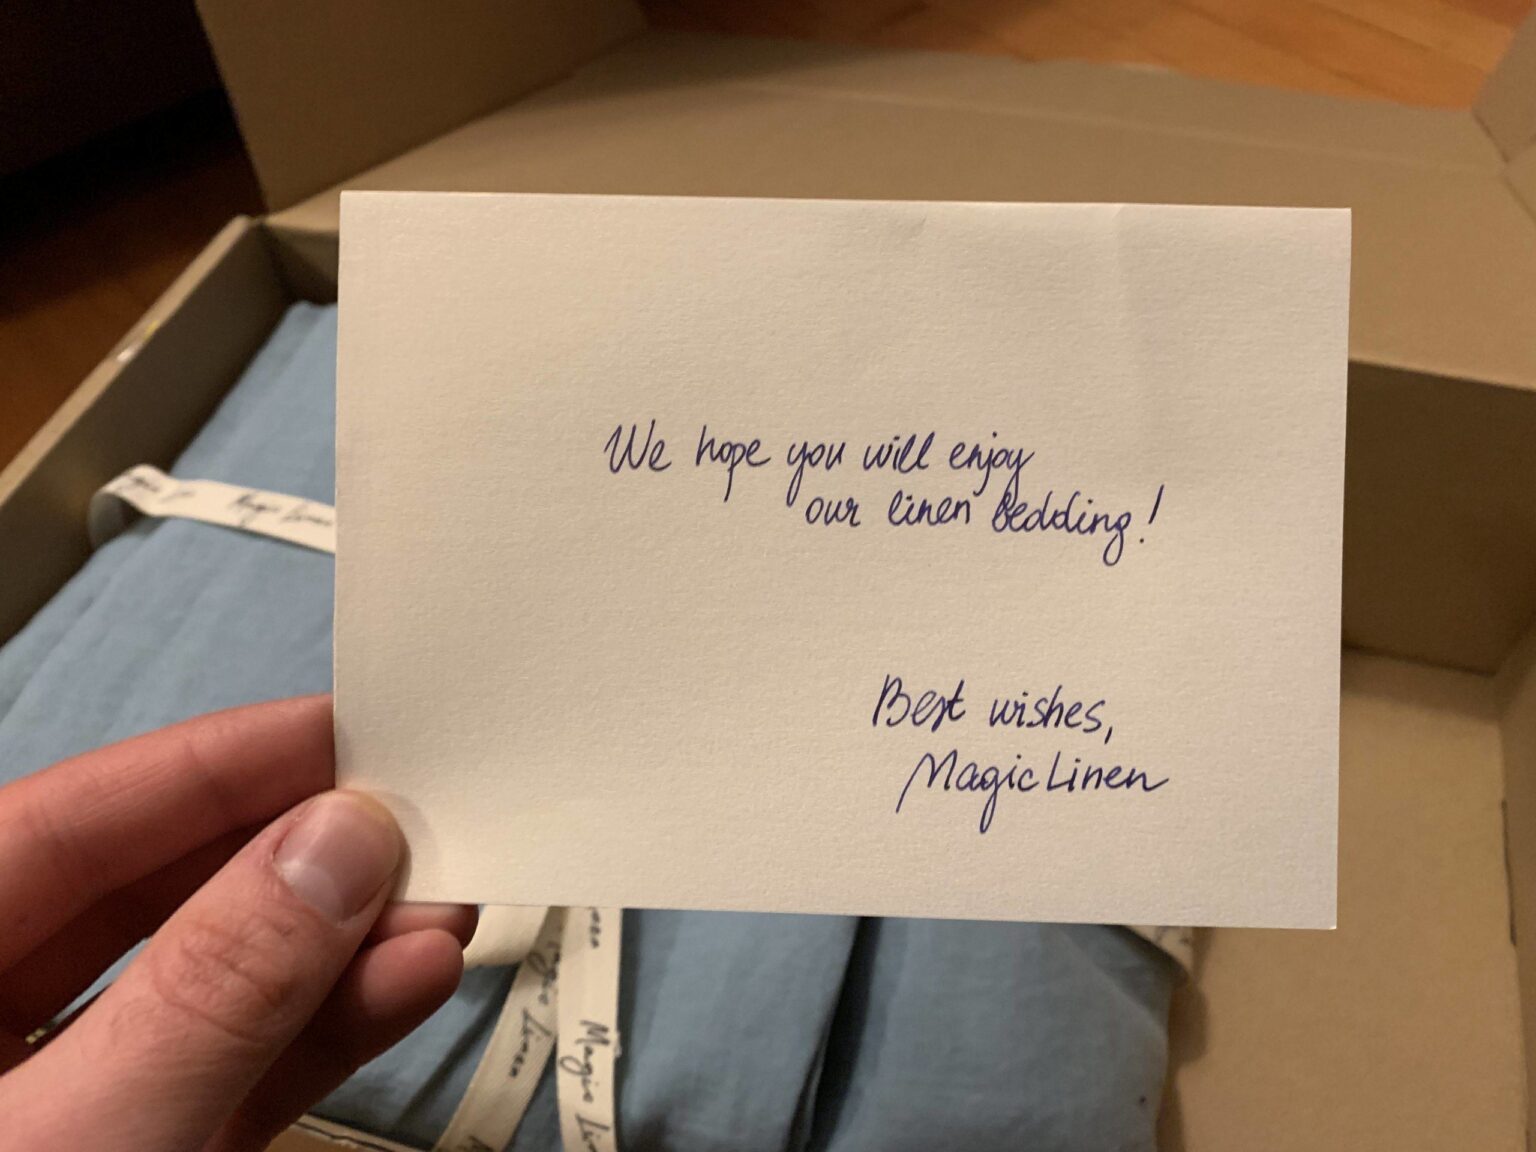 We hope you will enjoy
our linen bedding!
Best wishes,
MagicLinen
Magic Linen
Magic Linen
Magic